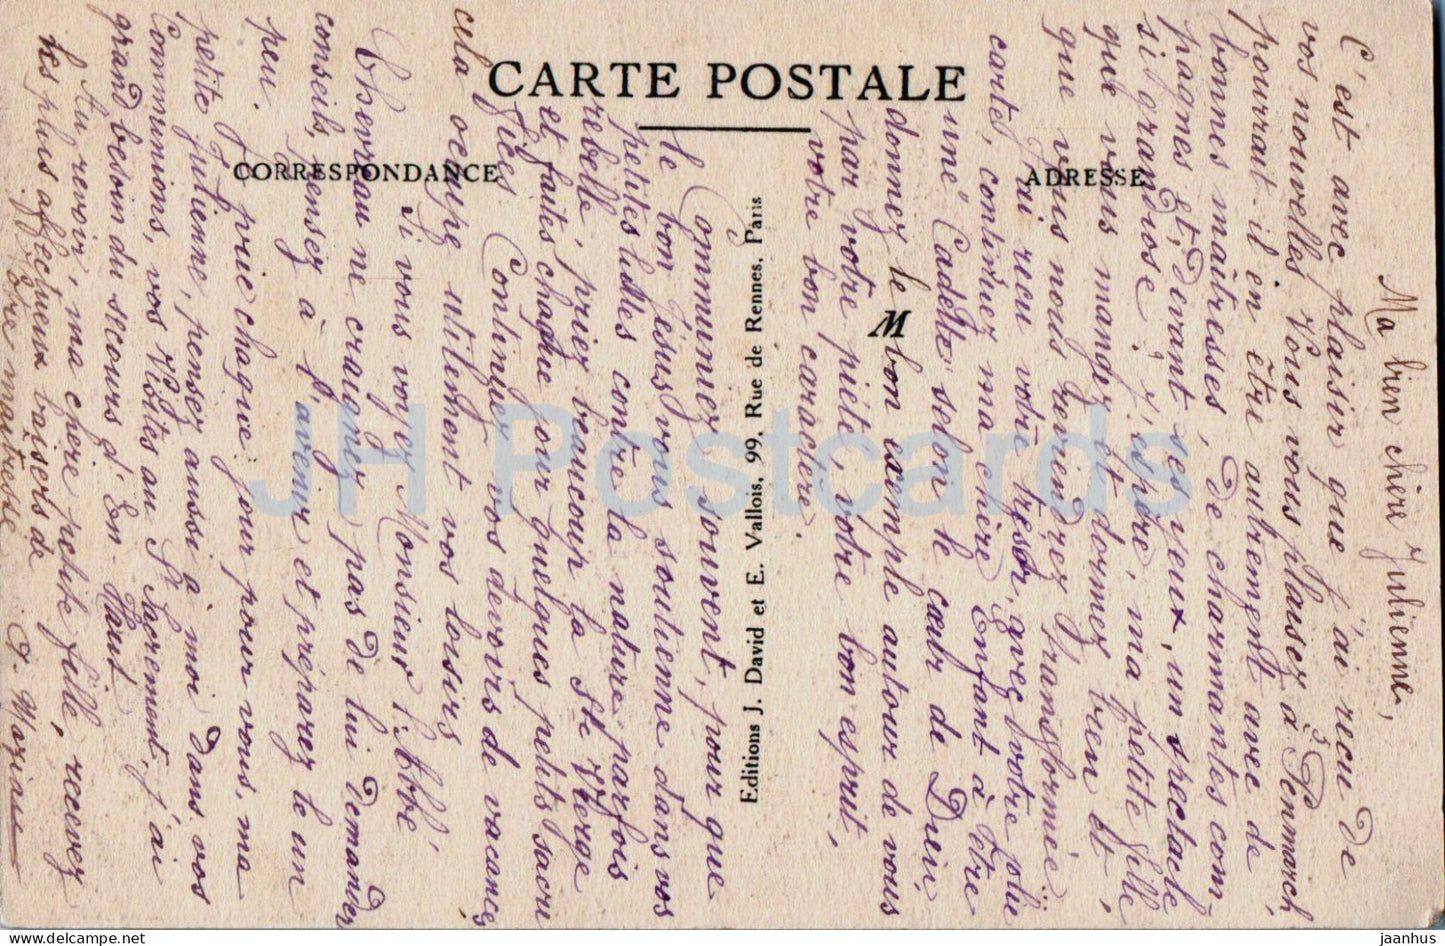 CARTE POSTALE
CORRESPONDANCE
ADRESSE
Ma bien chère Julienne,
C'est avec plaisir que j'ai reçu de
vos nouvelles. Vous vous plaisez à Penmarch,
pourrait-il en être autrement avec de
bonnes maîtresses, de charmantes com-
pagnes et, devant les yeux, un spectacle
si grandiose? J'espère, ma petite fille,
que vous mangez et dormez bien et,
que vous nous reviendrez transformée...
J'ai reçu votre trésor, avec votre jolie
carte, continuez ma chère Enfant à être
une "Cadette" selon le cœur de Dieu,
donnez le bon exemple autour de vous
par votre piété, votre bon esprit,
votre bon caractère.
M
Editions J. David et E. Vallois, 99, Rue de Rennes, Paris
Communiez souvent, pour que
le bon Jésus vous soutienne dans vos
petites luttes contre la nature parfois
rebelle, priez beaucoup la Ste Vierge
et faites chaque jour quelques petits sacri
fices. Continuez vos devoirs de vacances
cela occupe utilement vos loisirs.
Si vous voyez Monsieur l'Abbé
ne craignez pas de lui demander
conseils, pensez à l'avenir et préparez le un
peu. Je prie chaque jour pour vous, ma
petite Julienne, pensez aussi à moi dans vos
Communions, vos Visites au St Sacrement, j'ai
grand besoin du secours d'En-Haut.
Au revoir, ma chère petite fille, recevez
les plus affectueux baisers de
votre maîtresse
JH Postcards
www.delcampe.net
jaanhus